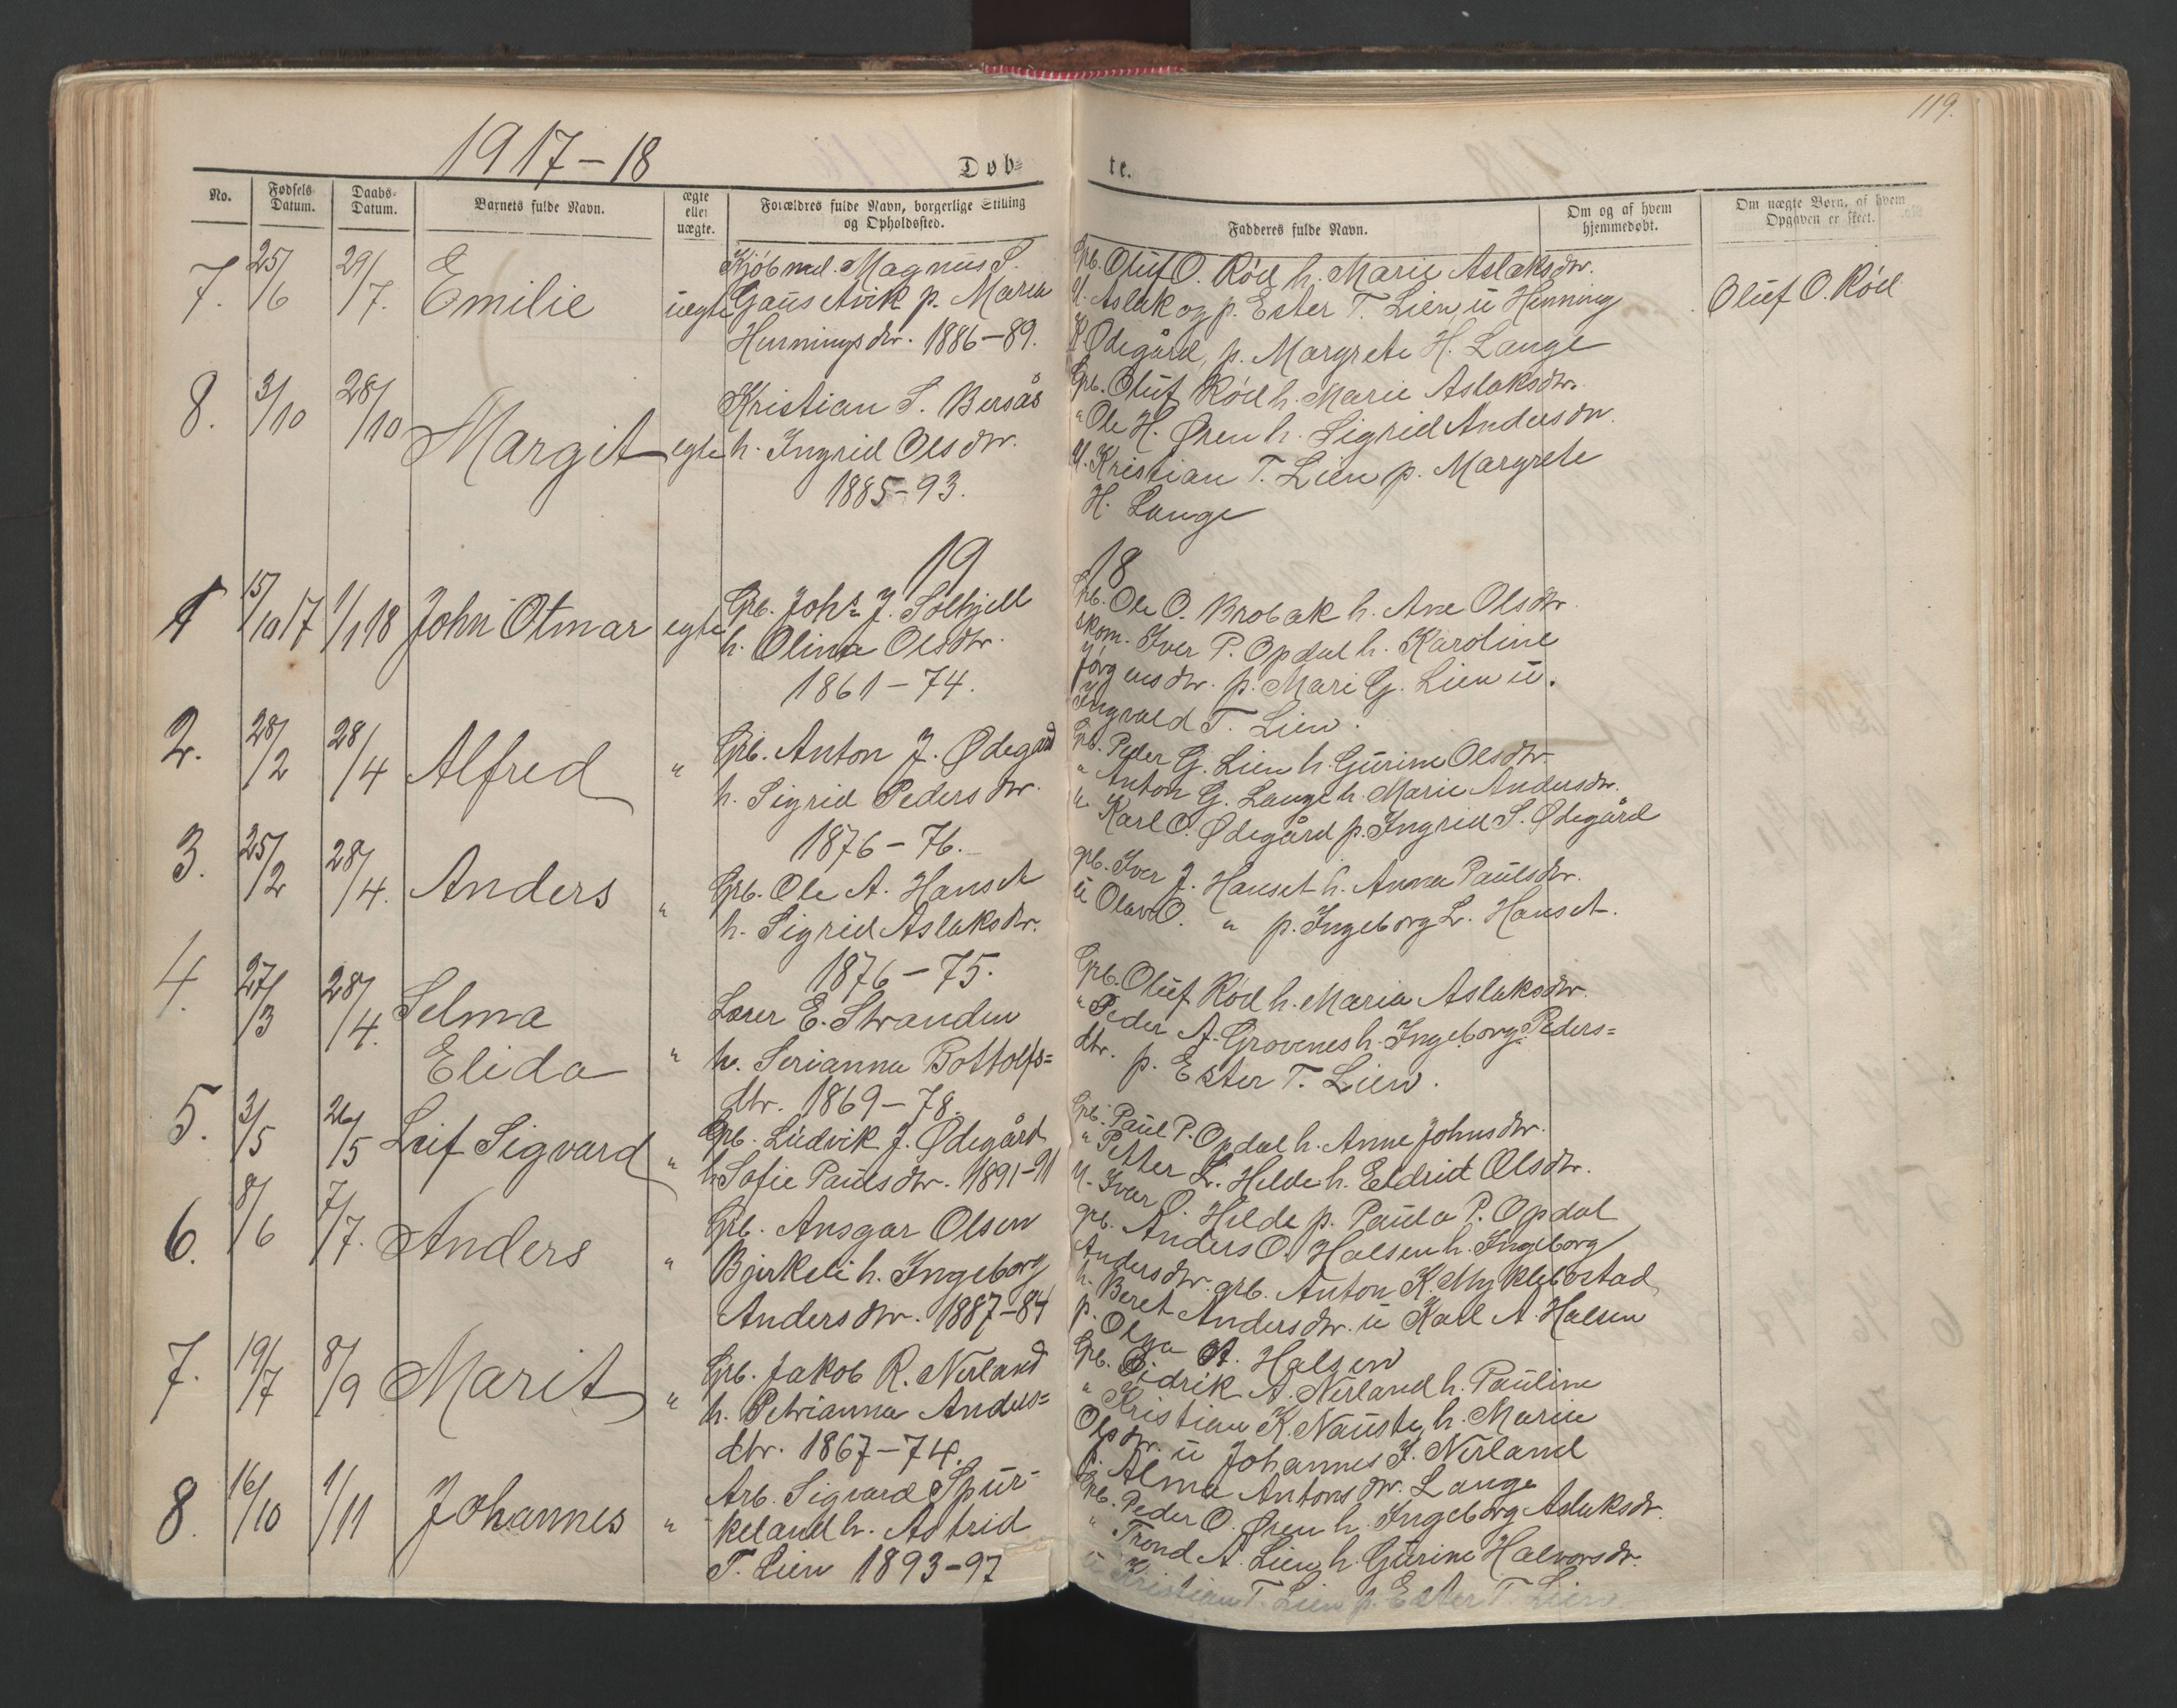 119.
1917-18
Døb-
te.
No.
Fødsels Datum.
Daabs- Datum.
Barnets fulde Navn.
ægte eller uægte.
Forældres fulde Navn, borgerlige Stilling og Opholdssted.
Fadderes fulde Navn.
Om og af hvem hjemmedøbt.
Om uægte Børn, af hvem Opgaven er skeet.
7. 25/6 29/7. Emilie uegte
Kjøbmd. Magnus S.
Gausetvik p. Maria
Henningsdtr. 1886-89.
Grb. Oluf O. Rød h. Marie Aslaksdtr.
U. Aslak og p. Ester T. Lien, u Henning
K Ødegård, p. Margrete H. Lange
Oluf O. Rød
8. 3/10 28/10 Margit egte
Kristian S. Bersås
h. Ingrid Olsdtr.
1885-93.
Grb. Oluf Rød h. Marie Aslaksdtr.
" Ole H. Øren h. Sigrid Andersdtr.
U. Kristian T. Lien p. Margrete
H. Lange
19 18
1 15/10 17 1/1 18 John Otmar egte
Grb. Johs J. Solhjell
h. Olina Olsdtr.
1861-74.
Grb. Ole O. Brobak h. Ane Olsdtr
skom. Iver P. Opdal h. Karoline
Jørgensdtr. p. Mari G. Lien u.
Ingvald T. Lien.
2. 28/2 28/4 Alfred "
Grb. Anton J. Ødegård
h. Sigrid Pedersdtr.
1876-76.
Grb. Peder G. Lien h. Gurine Olsdtr.
" Anton G. Lange h. Marie Andersdtr.
u. Karl O. Ødegård p. Ingrid S. Ødegård
3. 25/2 28/4. Anders "
Grb. Ole A. Hanset
h. Sigrid Aslaksdtr.
1876-75.
grb. Iver J. Hanset h. Anna Paulsdtr.
u Olav O. " p. Ingeborg L. Hanset.
4. 27/3 28/4. Selma
Elida "
Lærer E. Stranden
h. Serianna Bottolfs=
dtr. 1869-78.
Grb. Oluf Rød h. Maria Aslaksdtr.
" Peder A. Grovenes h. Ingeborg Peders=
dtr. p. Ester T. Lien.
5. 3/5 26/5 Leif Sigvard "
Grb. Ludvik J. Ødegård
h Sofie Paulsdtr. 1891-91
Grb. Paul P. Opdal h. Anne Johnsdtr.
" Petter L. Hilde h. Eldrid Olsdtr.
U. Ivar O. Hilde p. Paula P. Opdal
6. 8/6 7/7. Anders "
Grb. Ansgar Olsen
Bjerkeli h. Ingeborg
Andersdtr. 1887-84
grb. Anders O. Halsen h. Ingeborg
Andersdtr. grb. Anton K. Myklebostad
h. Beret Andersdtr. u Karl A. Halsen
p. Olga A. Halsen
7. 19/7 8/9 Marit "
Grb. Jakob R. Nerland
h. Petrianna Anders=
dtr. 1867-74.
Grb. Didrik A. Nerland h. Pauline
" Kristian K. Nauste h. Marie
Olsdtr. u Johannes J. Nerland
p. Alma Antonsdtr. Lange
8. 16/10 1/11 Johannes "
Arb. Sigvard Spur-
keland h. Astrid
T. Lien 1893-97
Grb. Peder O. Øren h. Ingeborg Aslaksdtr.
" Trond A. Lien h. Gurine Halvorsdtr.
u Kristian T. Lien p. Ester T. Lien